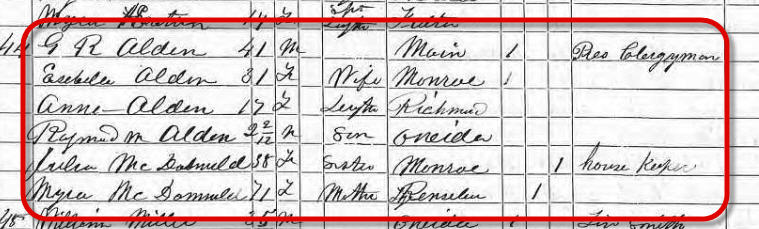 Myra 14 F
44 G R Alden 41 M Main 1 Rev Clergyman
Esebella Alden 31 F Wife Monroe 1
Anne Alden 17 F Daughtr Richmud
Raymud M Alden 2 2/12 M Son Oneida
Julia Mc Donnueld 38 F Sister Monroe 1 house Keeper
Myra Mc Donnueld 71 F Mothr Rensselur 1
William Miller 35 M Oneida 1 Tin Smith